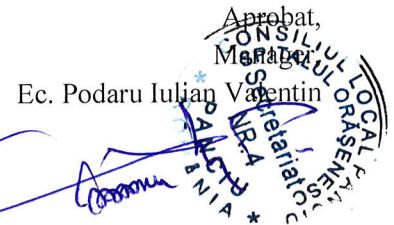 Aprobat,
Manager,
Ec. Podaru Iulian Valentin
CONSILIUL LOCAL PANCIU
SPITALUL ORĂȘENESC
Secretariat
NR.4
PANCIU